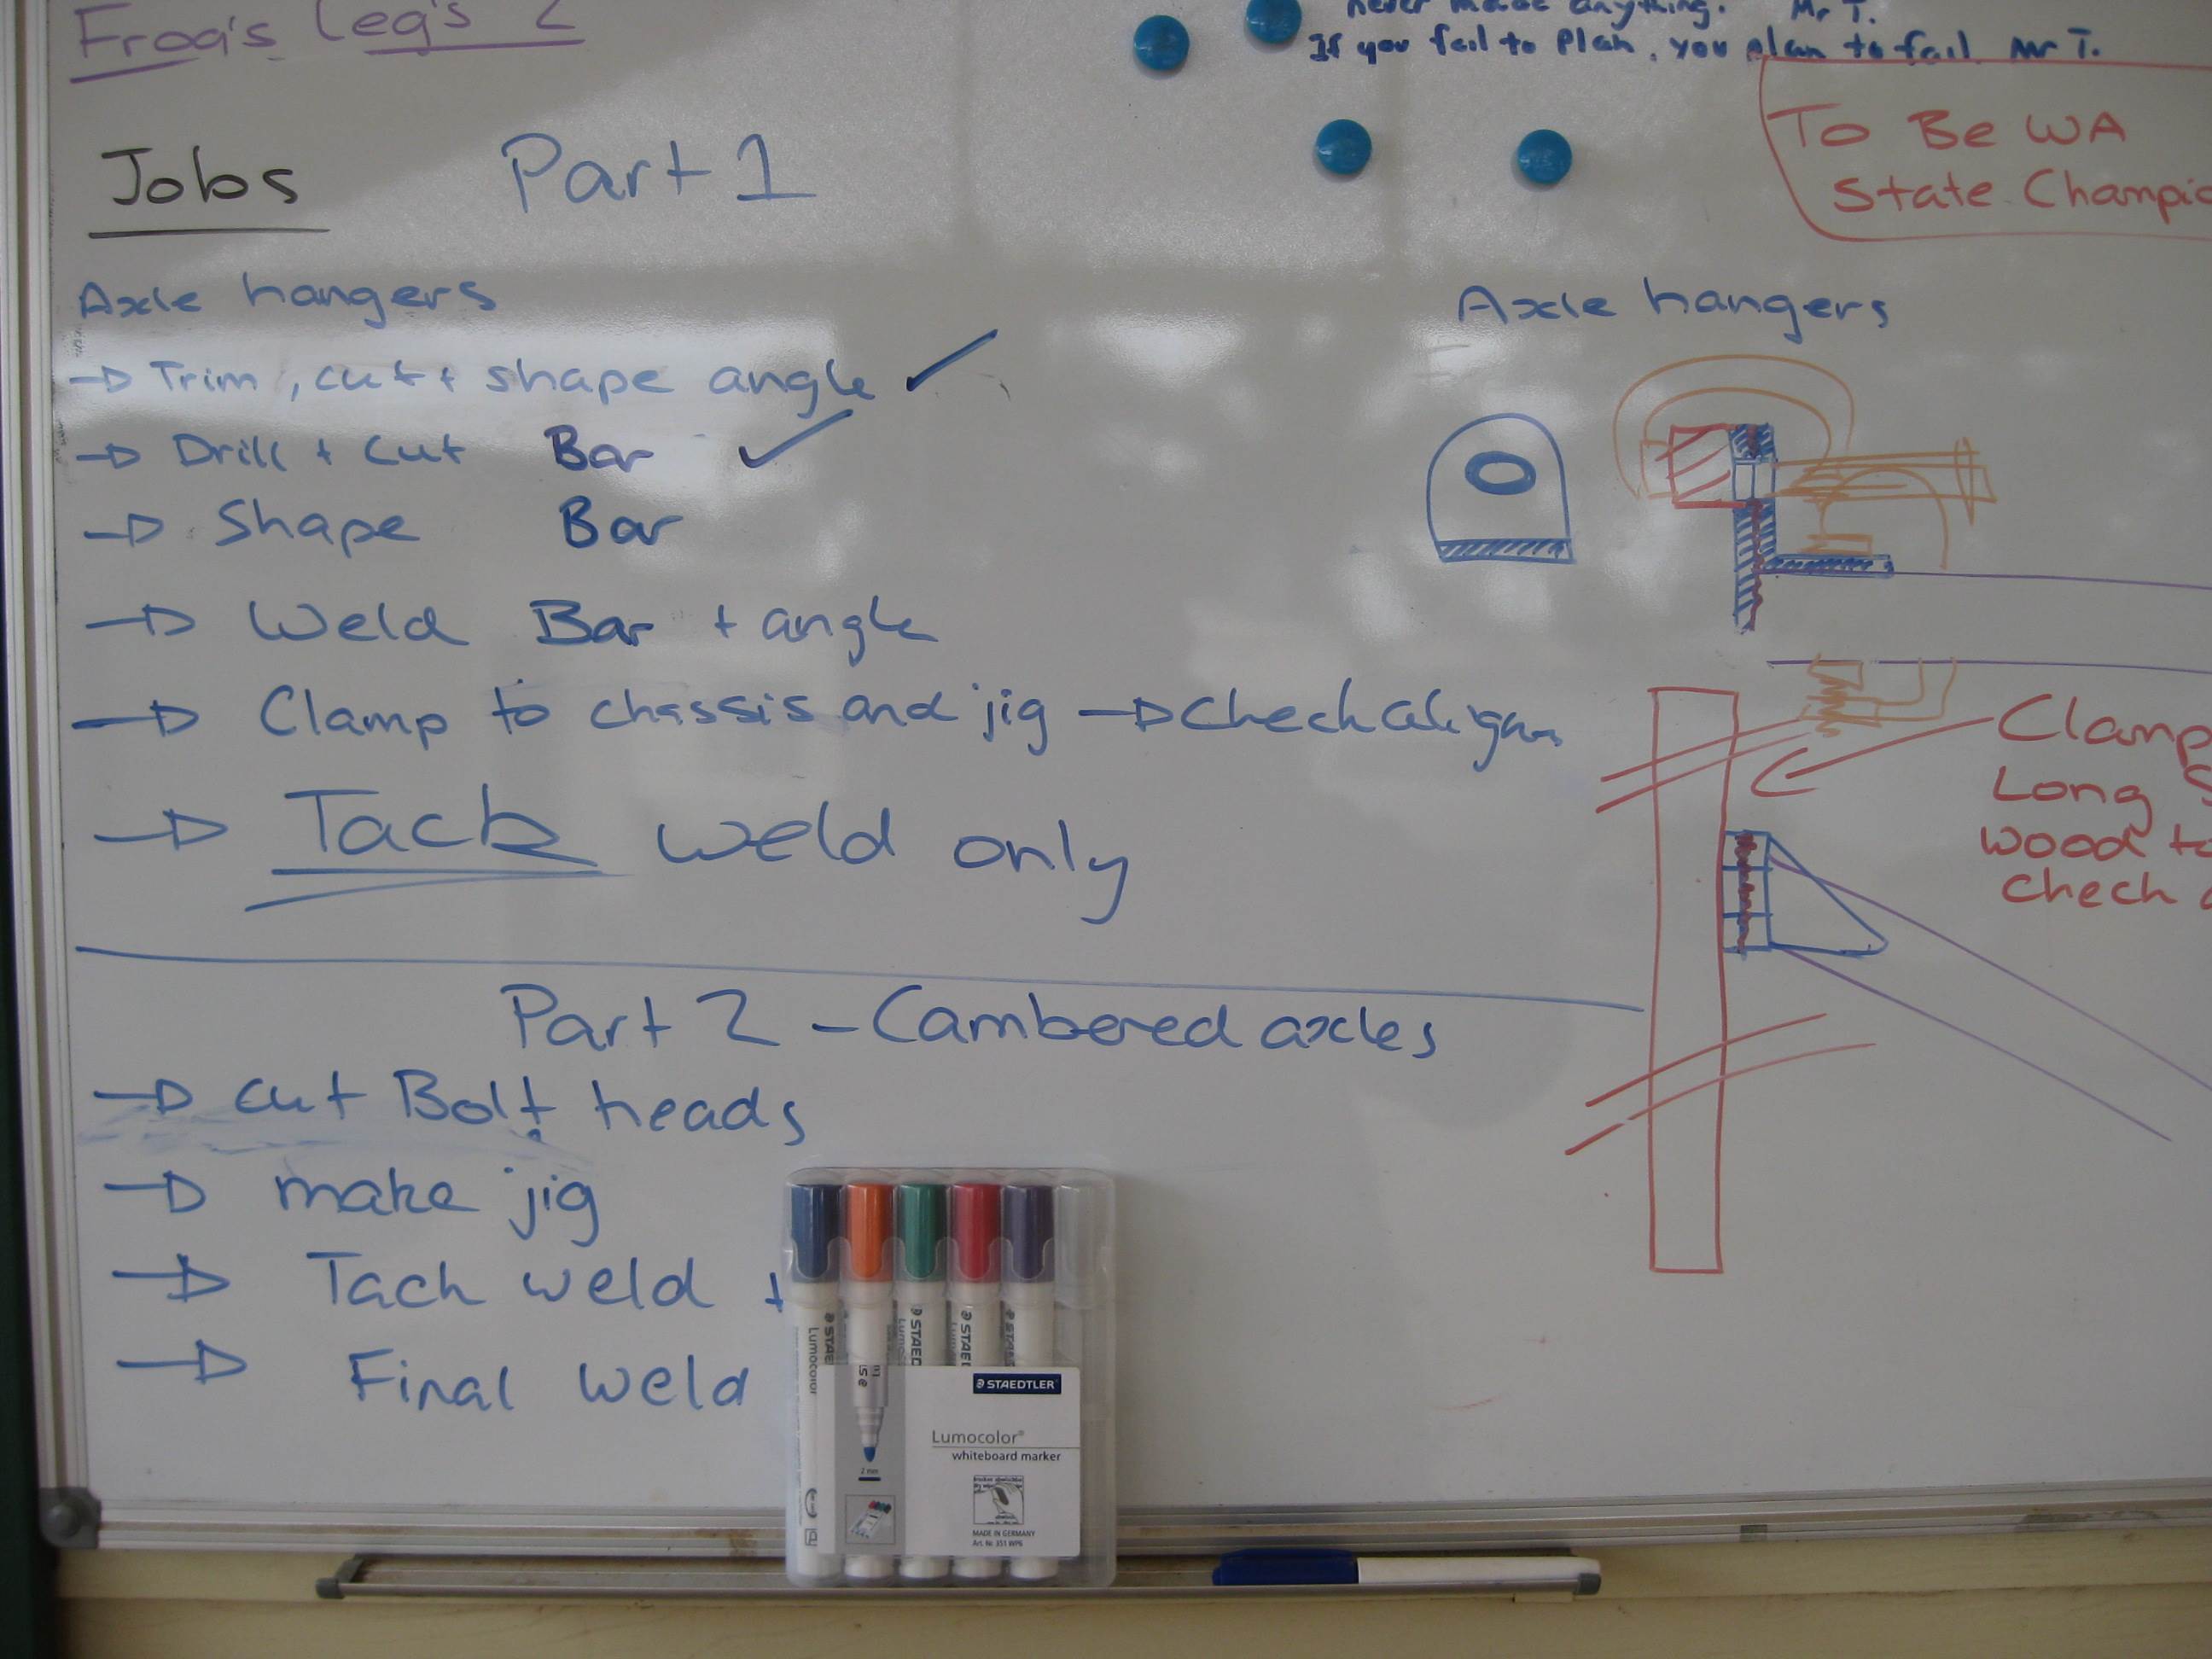 Frog's Leg's 2
never made anything. Mr T.
If you fail to Plan, you plan to fail Mr T.
To Be WA
State Champio
Jobs Part 1
Axle hangers
→ Trim, cut + shape angle ✓
→ Drill + Cut Bar ✓
→ Shape Bar
→ Weld Bar + angle
→ Clamp to chassis and jig → Check align
→ Tack weld only
Axle hangers
Clamp
Long S
wood to
Check a
Part 2 - Cambered axles
→ cut Bolt heads
→ make jig
→ Tack weld +
→ Final weld
STAEDTLER
Lumocolor®
whiteboard marker
2 mm
MADE IN GERMANY
Art. Nr. 351 WP6
Lumocolor
STAED
STAED
STAE